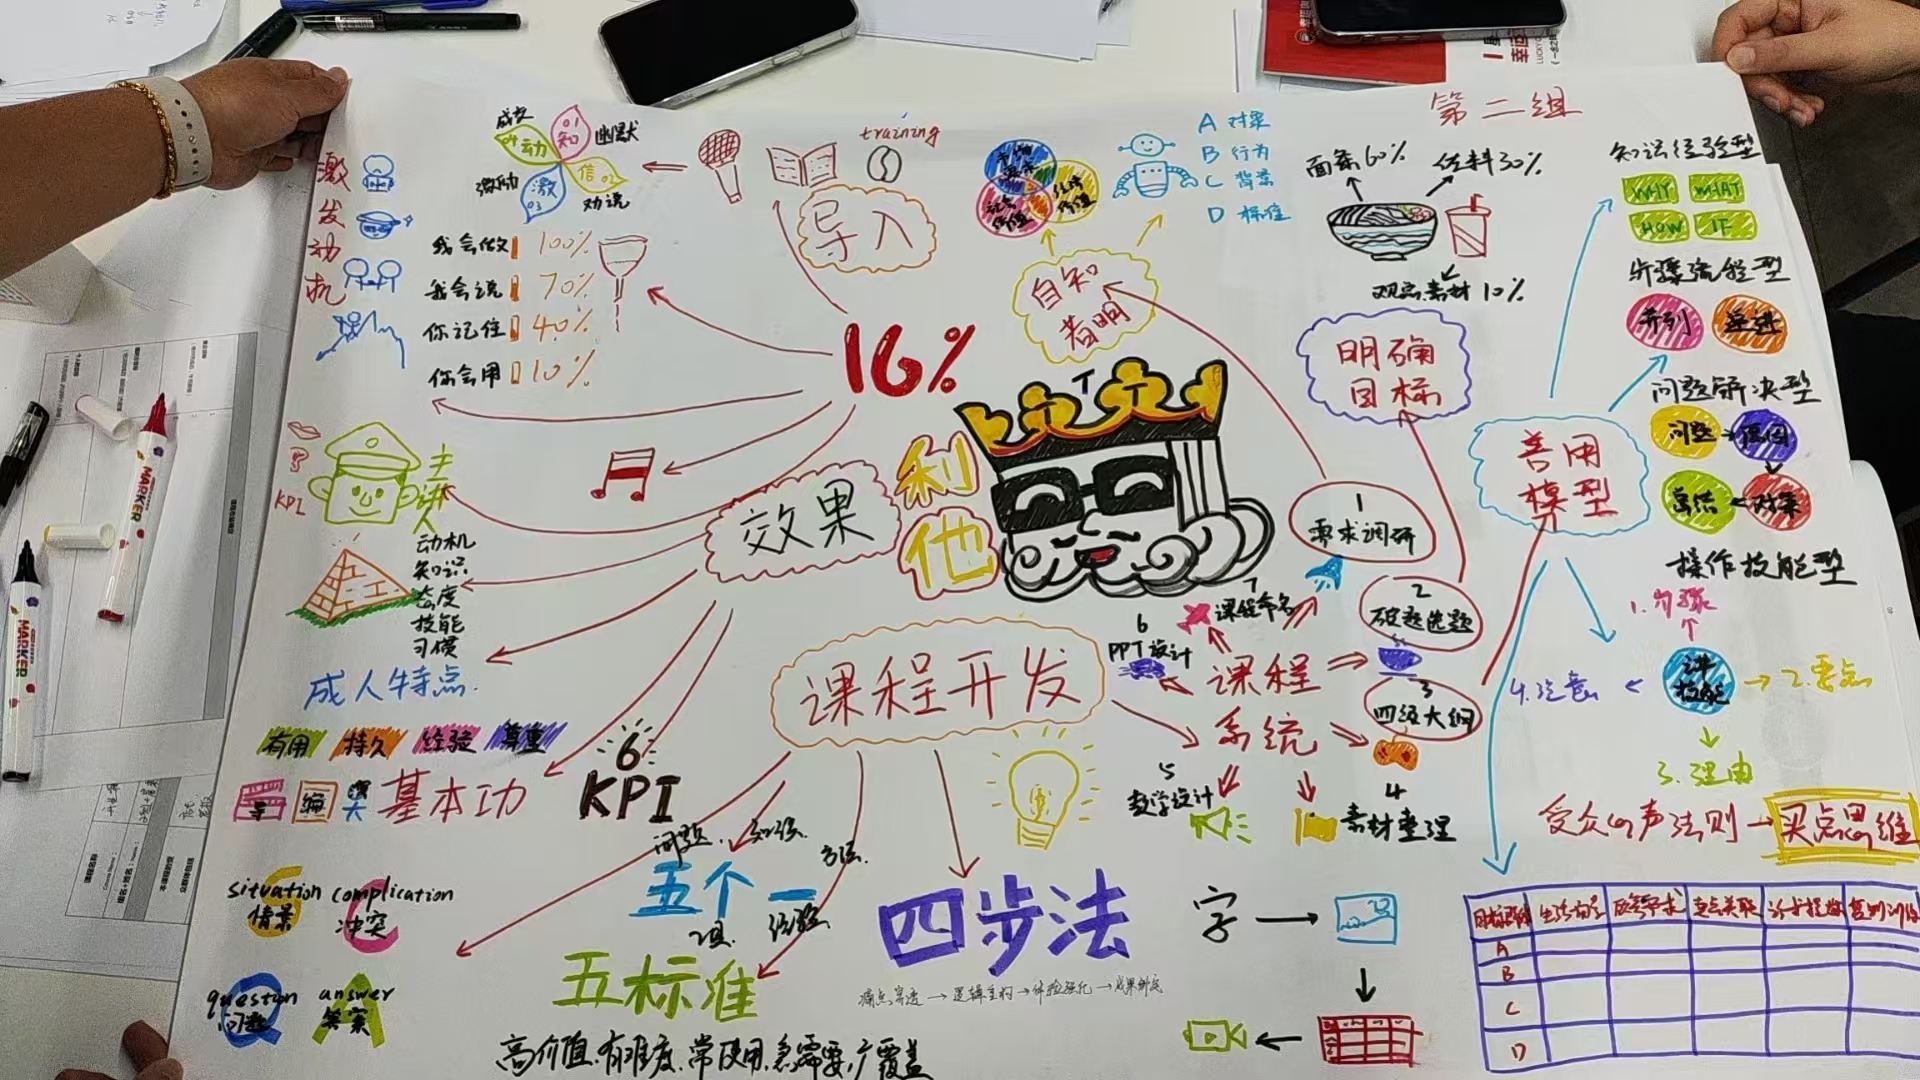 第二组
成交
04 动
01 知
幽默
信 02
激 03
激励
劝说
training
导入
激发动机
我会做 100%
我会说 70%
你记住 40%
你会用 10%
16%
A 对象
B 行为
C 背景
D 标准
自知者明
面条60%
佐料30%
观点素材10%
明确目标
知识经验型
WHY WHAT
HOW IF
步骤流程型
并列 递进
问题解决型
问题 原因
总结 对策
操作技能型
善用模型
1.步骤
2.要点
3.理由
4.注意
受众心声法则→买点思维
A
B
C
D
KPI
主讲人
动机
知识
态度
技能
习惯
成人特点
有用 持久 经验 尊重
导 编 奖 基本功
6
KPI
效果
利他
课程开发
课程系统
1 需求调研
2 破题选题
3 四级大纲
4 素材整理
5 教学设计
6 PPT设计
7 课程命名
situation 情景
complication 冲突
question 问题
answer 答案
问题
知识
方法
五个一
工具
经验
五标准
高价值、有难度、常使用、急需要、广覆盖
四步法
字
MARKER
MARKER